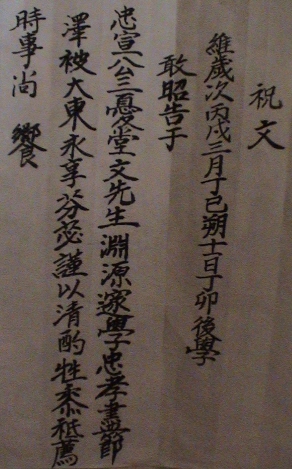 祝文
維歲次丙戌三月丁巳朔十日丁卯後學
敢昭告于
忠宣公三憂堂文先生淵源邃學忠孝盡節
澤被大東永享芬苾謹以清酌牲黍祗薦
時事尚 饗